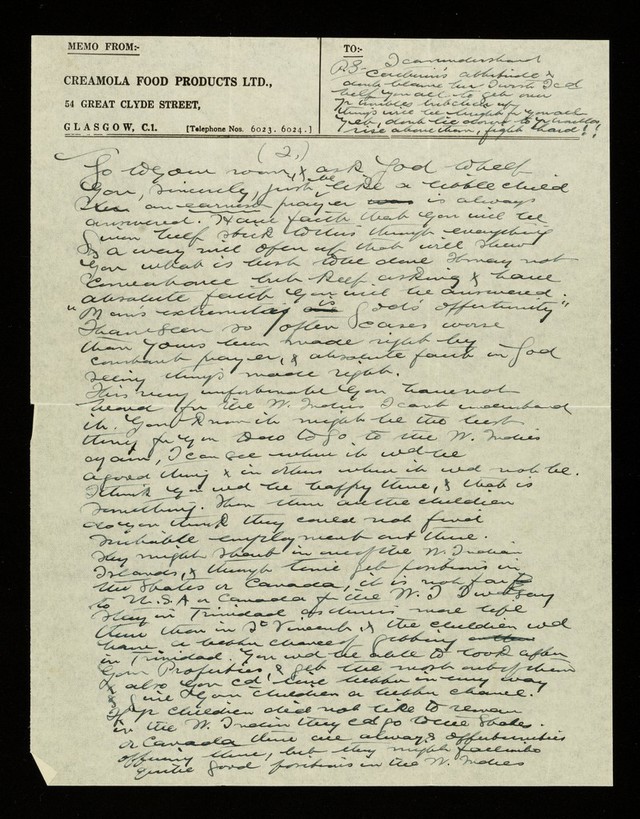 MEMO FROM:-
CREAMOLA FOOD PRODUCTS LTD.,
54 GREAT CLYDE STREET,
GLASGOW, C.1. [Telephone Nos. 6023. 6024.]
TO:-
P.S- I can understand
attitude &
dont blame her I wish I cd
help you all to get over
yr troubles but cheer up
things will be bright for you all
yet, dont lie down to yr troubles
rise above them, fight hard!!
(2.)
Go to your room, & ask God to help
you, sincerely, just like a little child
an earnest prayer is always
answered. Have faith that you will be
given help stick to this through everything
& a way will open up that will show
you what is best to be done It may not
come at once but keep asking & have
absolute faith you will be answered.
"Man's extremity is God's opportunity"
I have seen so often cases worse
than yours been made right by
constant prayer, & absolute faith in God
seeing things made right.
It is very unfortunate you have not
heard fr the W. Indies I cant understand
it. You know it might be the best
thing for you to go to the W. Indies
again, I can see where it wd be
a good thing & in others when it wd not be.
I think you wd be happy there, & that is
something. Then there are the children
do you think they could not find
suitable employment out there.
They might start in one of the W. Indian
Islands, & through time get positions in
the States or Canada, it is not far
to U.S.A or Canada fr the W.I I wd say
stay in Trinidad as there is more life
there than in St Vincent & the children wd
have a better chance of getting
in Trinidad. You wd be able to look after
your Properties & get the most out of them
also you cd live better in every way
& give your children a better chance.
If yr children did not like to remain
in the W. Indies they cd go to the States
or Canada there are always opportunities
offering there, but they might fall into
quite good positions in the W. Indies